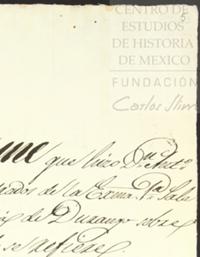 CENTRO DE
ESTUDIOS
DE HISTORIA
DE MEXICO
FUNDACIÓN
Carlos Slim
5
me que hizo Dn. Anto
de la Exma. Sala
de Durango sobre
se refiere